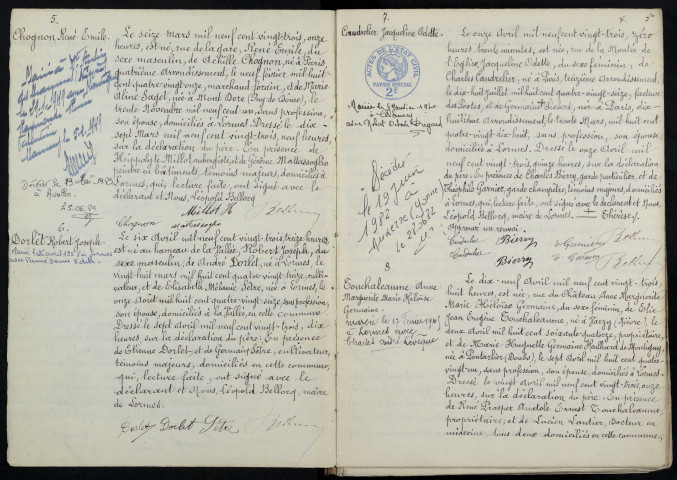 5.
Chognon René Emile.
Le seize mars mil neuf cent vingt-trois, onze
heures, est né, rue de la gare, René Emile, du
sexe masculin, de Achille Chognon, né à Paris,
quatrième arrondissement, le neuf février mil huit
cent quatre-vingt onze, marchand forain, et de Marie
Aline né à Mont Dore (Puy de Dôme), le
trente Novembre mil neuf cent un, sans profession,
son épouse, domiciliés à Lormes. Dressé le dix-
sept Mars mil neuf cent vingt-trois, neuf heures,
sur la déclaration du père. En présence de
Hippolyte Millot aubergiste, et de Gérôme Mattassoglio
peintre en bâtiments, témoins majeurs, domiciliés à
Lormes, qui, lecture faite, ont signé avec le
déclarant et Nous, Léopold Bellocq
Millot H
Chognon
Mattassoglio
Décédé le 13
à
6.
Dorlet Robert Joseph.
Marié à Lormes
avec
Le six Avril mil neuf cent vingt-trois, treize heures,
est né au hameau de la Vallée, Robert Joseph, du
sexe masculin, de André Dorlet, né à Lormes le
vingt-huit mars mil huit cent quatre-vingt-seize, culti-
vateur, et de Elisabeth Mélanie Sétre, née à Lormes, le
onze Août mil huit cent quatre-vingt-seize, sans profession,
son épouse, domiciliés à la Vallée, en cette commune.
Dressé le sept Avril mil neuf cent vingt-trois, dix
heures, sur la déclaration du père. En présence
de Etienne Dorlet, et de Germain Sétre, cultivateur,
témoins majeurs, domiciliés en cette commune,
qui, lecture faite, ont signé avec le
déclarant et Nous, Léopold Bellocq, maire
de Lormes.
Dorlet Dorlet Sétre
7.
Caudrelier, Jacqueline Odette.
ACTES DE L'ETAT CIVIL
PAPIER SPECIAL
Mariée le 1940
à
avec Robert Dugand
Décédée
le 19 juin
1982 à
Auxerre Yonne
le
Le onze Avril mil neuf cent vingt-trois, zéro
heures, trente minutes, est née, rue de la Montée de
l'Eglise, Jacqueline Odette, du sexe féminin, de
Charles Caudrelier, né à Paris, treizième arrondissement,
le dix-huit Juillet mil huit cent quatre-vingt-seize, facteur
des Postes, et de Germaine née à Paris, dix-
huitième Arrondissement, le trente Mars, mil huit cent
quatre-vingt-dix-huit, sans profession, son épouse,
domiciliés à Lormes. Dressé le onze Avril mil
neuf cent vingt-trois, quinze heures, sur la déclaration
du père. En présence de Charles Bierry, garde particulier, et de
Théophile Garnier, garde champêtre, témoins majeurs, domiciliés
à Lormes, qui, lecture faite, ont signé avec le déclarant et Nous,
Léopold Bellocq, maire de Lormes.
Approuvé un renvoi
Caudrelier Bierry
Caudrelier Bierry
8.
Touchaleaume Anne
Marguerite Marie Héloïse
Germaine.
mariée le 17 Février 1945
à Lormes avec
Charles André Levêque
Le dix-neuf Avril mil neuf cent vingt-trois,
huit heures, est née, rue du Château, Anne Marguerite
Marie Héloïse Germaine, du sexe féminin, de Elie
Jean Eugène Touchaleaume, né à Varzy (Nièvre), le
deux Avril mil huit cent soixante-quatorze, propriétaire,
et de Marie Huguette Germaine de Montigny,
née à Pontarlier (Doubs), le sept Avril mil huit cent quatre-
vingt-un, sans profession, son épouse, domiciliés à Lormes.
Dressé le vingt Avril mil neuf cent vingt-trois, onze
heures, sur la déclaration du père. En présence
de René Prosper Anatole Ernest Touchaleaume,
propriétaire, et de Lucien Vautier, Docteur en
médecine, tous deux domiciliés en cette commune,